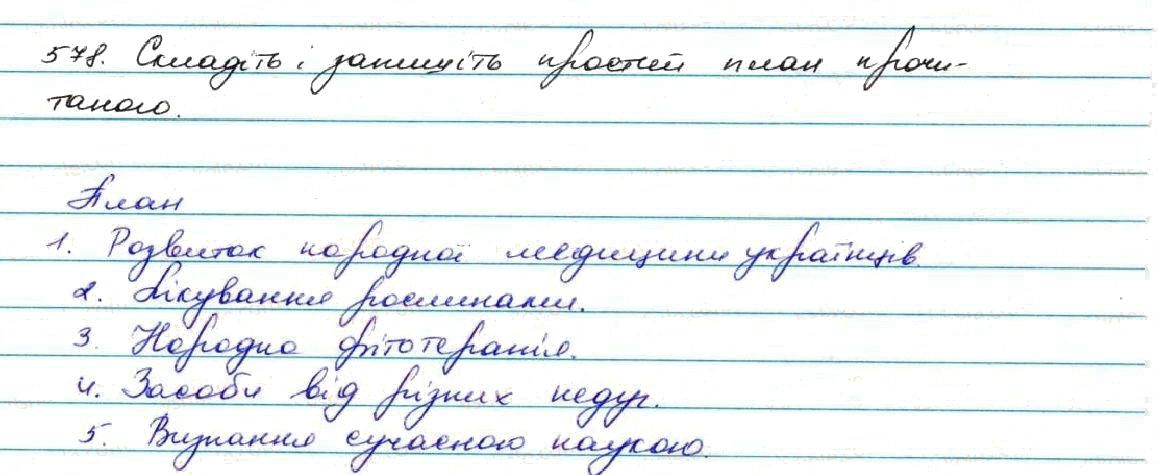 578. Складіть і запишіть простий план прочи-
таного.
План
1. Розвиток народної медицини українців.
2. Лікування рослинами.
3. Народна фітотерапія.
4. Засоби від різних недуг.
5. Визнання сучасною наукою.